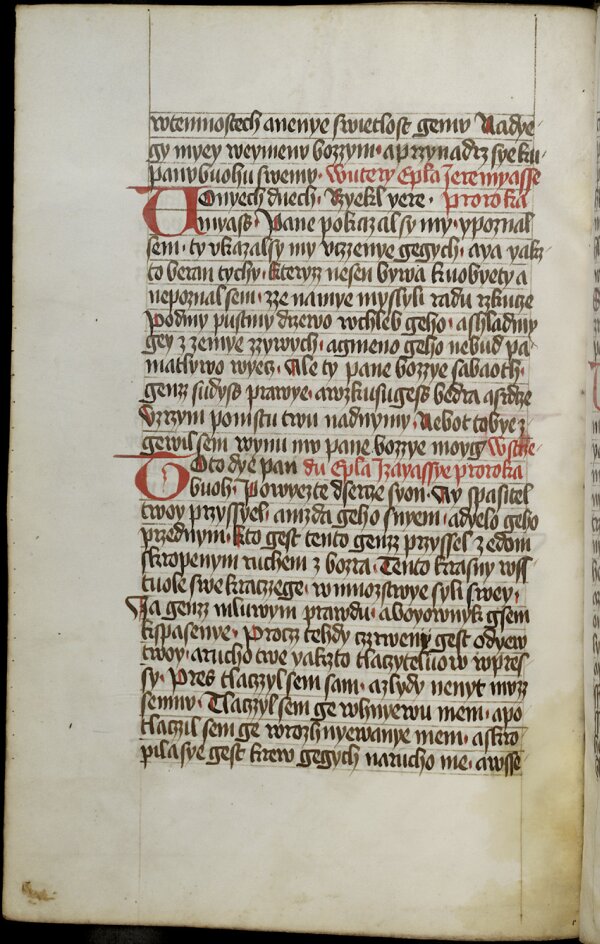 wtemnostech anenye swietlost gemv Nadye-
gy myey weymenv bozzym· aprzynadrz syeku-
panv buohu swemv· Wutery Epla Jeremyasse
Vonyech dnech· Rzyekl yere· proroka
myass· Pane pokazal sy my· ypoznal
sem· ty vkazalsy my vczzenye gegych· aya yakz
to beran tychy· kteryz nesen bywa kuobyety a
nepoznal sem· zze namye myslyli radu rzkucze
Podmy pustmy drzewo wchleb geho· ashladmy
gey z zemye zzywych· agmeno geho nebud pa-
matlywo wyecz· Ale ty pane bozzye sabaoth·
genz sudyss prawye· awzkusugess bedra asrdze
Vzrzym pomstu twu nadnymy· Nebot tobye z-
gewil sem wynu mv pane bozzye moyg Wstrze-
Toto dye pan du Epla Izayassye proroka
buoh· Powyezte dserze syon· Ay spasitel
twoy przyssyel· amzda geho snym· adyelo geho
przednym· kto gest tento genz przyssel z edom
skropenym ruchem z bozra· Tento krasny wss
tuole swe kraczege· wmnozstwye syli swey·
Ya genz mluwym prawdu· aboyownyk gsem
kspasenye· Procz tehdy czrweny gest odyew
twoy· arucho twe yakzto tlaczyteluow wpres-
sy· Pres tlaczyl sem sam· azlydy nenyt muz
semnu· Tlaczyl sem ge whnyewu mem· apo
tlaczil sem ge wrozhnyewanye mem· askro
pila sye gest krew gegych narucho me· awsse